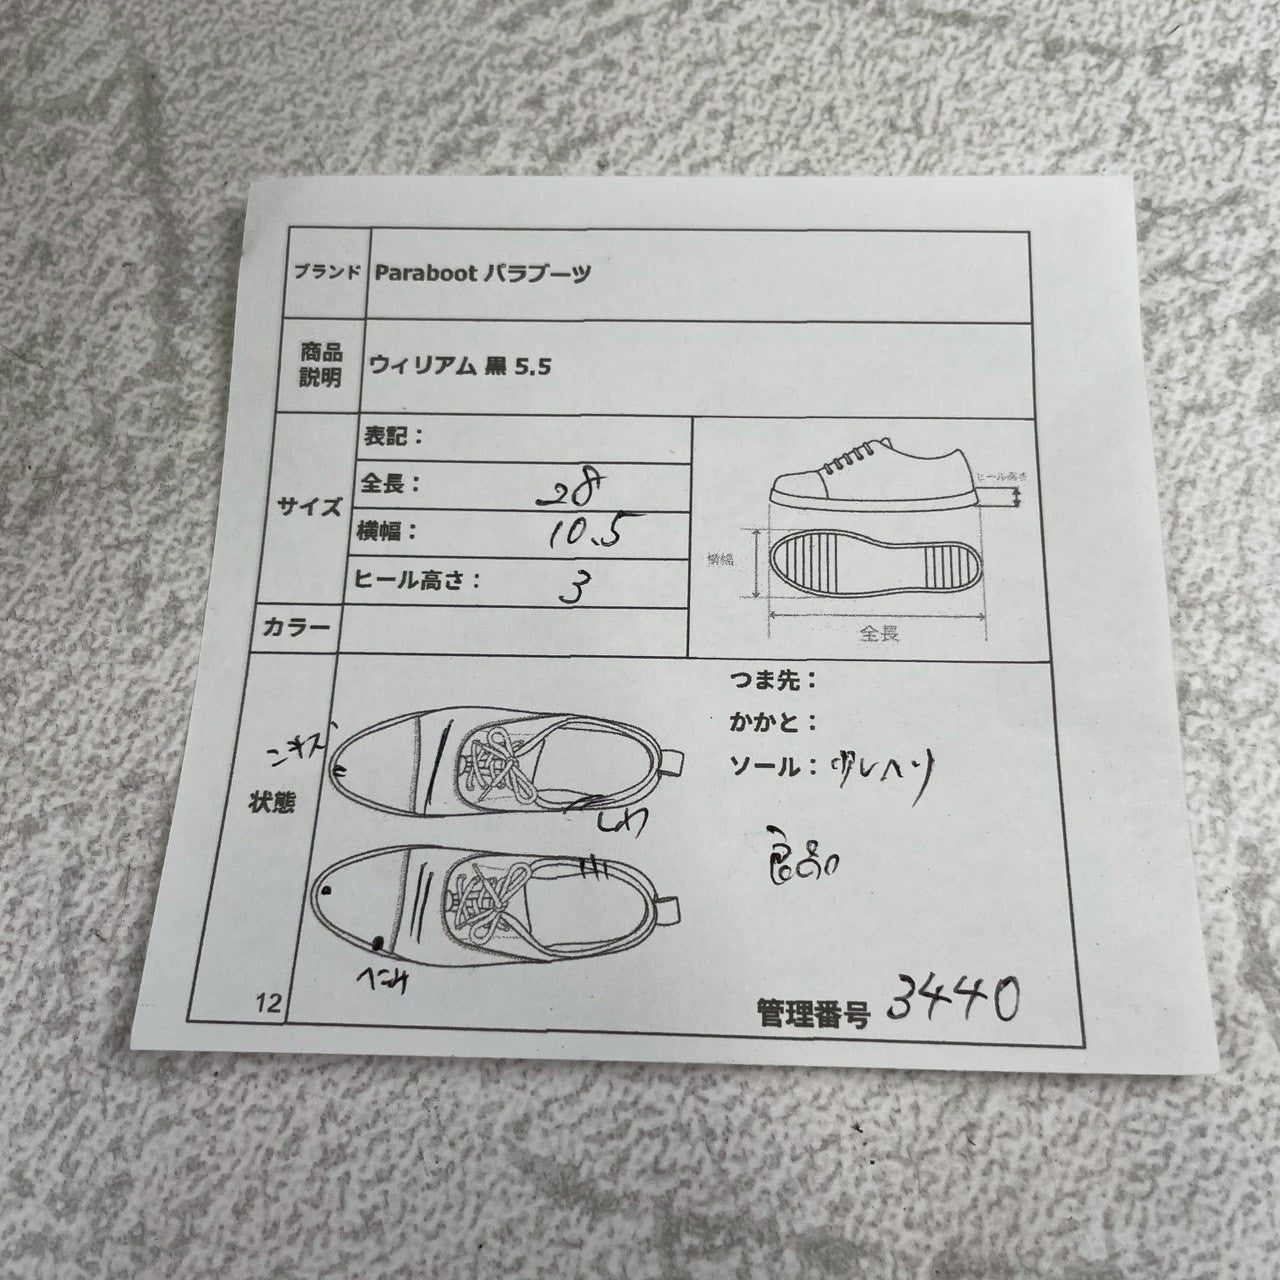 ブランド Paraboot パラブーツ
商品説明 ウィリアム 黒 5.5
サイズ
表記：
全長： 28
横幅： 10.5
ヒール高さ： 3
ヒール高さ
横幅
全長
カラー
状態
つま先：
かかと：
ソール： 少しヘリ
キズ
しわ
良品
へこみ
12
管理番号 3440